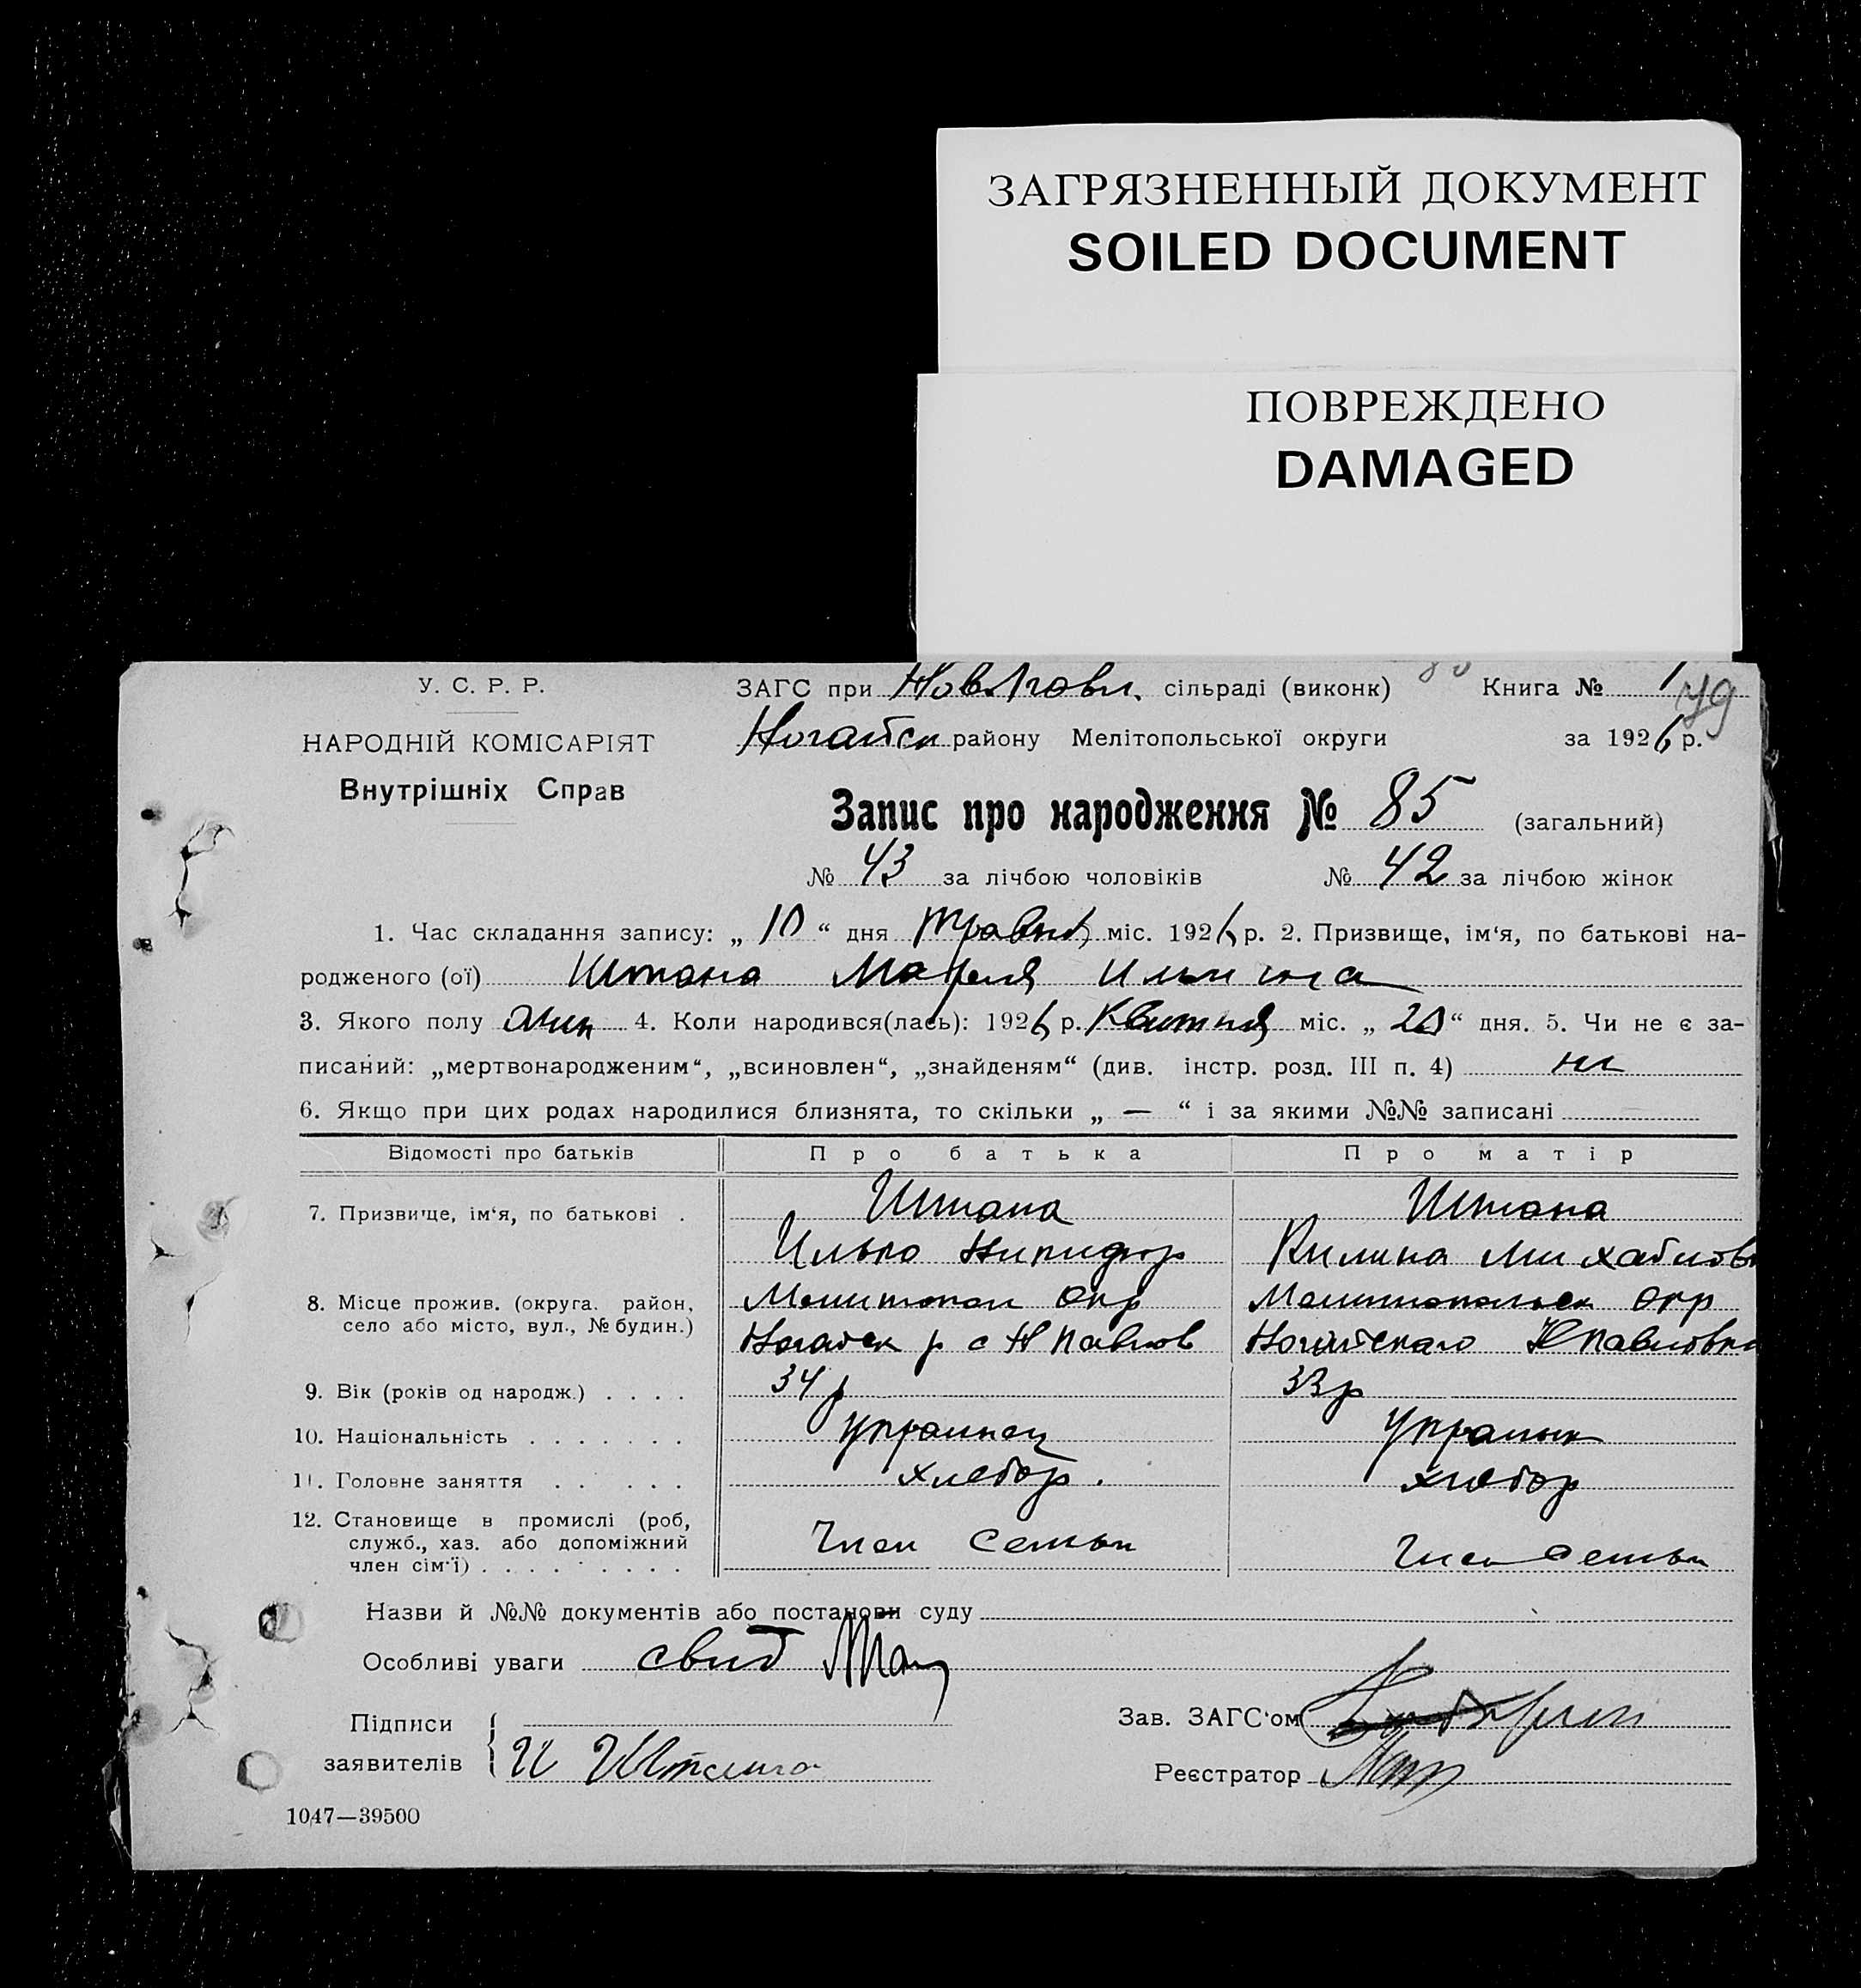 ЗАГРЯЗНЕННЫЙ ДОКУМЕНТ
SOILED DOCUMENT
ПОВРЕЖДЕНО
DAMAGED
У. С. Р. Р.
НАРОДНІЙ КОМІСАРІЯТ
Внутрішніх Справ
ЗАГС при сільраді (виконк) Книга № 1
79
Ногайск району Мелітопольської округи за 1926 р.
Запис про народження № 85 (загальний)
№ 43 за лічбою чоловіків № 42 за лічбою жінок
1. Час складання запису: „ 10 “ дня травня міс. 1926 р. 2. Призвище, ім‘я, по батькові на-
родженого (ої) Штана Мария
3. Якого полу 4. Коли народився(лась): 1926 р. Квитня міс. „ 20 “ дня. 5. Чи не є за-
писаний: „мертвонародженим“, „всиновлен“, „знайденям“ (див. інстр. розд. III п. 4) не
6. Якщо при цих родах народилися близнята, то скільки „ — “ і за якими №№ записані
Відомості про батьків Про батька Про матір
7. Призвище, ім‘я, по батькові . Штана Штана
Илько Никифор Килина Михайлов
8. Місце прожив. (округа. район, село або місто, вул., № будин.) Мелитопол Окр Мелитопольск Окр
Ногайск р с Н Павлов Ногайского Н Павловка
9. Вік (років од народж.) . . . . 34 р 33 р
10. Національність . . . . . . . украинец Украинк
11. Головне заняття . . . . . хлебор. хлебор
12. Становище в промислі (роб, служб., хаз. або допоміжний член сім‘ї) . . . . . . . . . Член семьи Член семьи
Назви й №№ документів або постанови суду
Особливі уваги свид
Підписи заявителів { И Штана
Зав. ЗАГС‘ом
Реєстратор
1047—39500